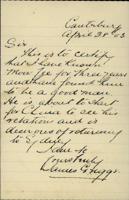 Canterbury
April 28 03
Sir
This is to certify
that I have known
for three years
and have found him
to be a good man
He is about to start
for China to see his
relations and is
desirous of returning
to Sydney
I am Sir
Yours truly
James